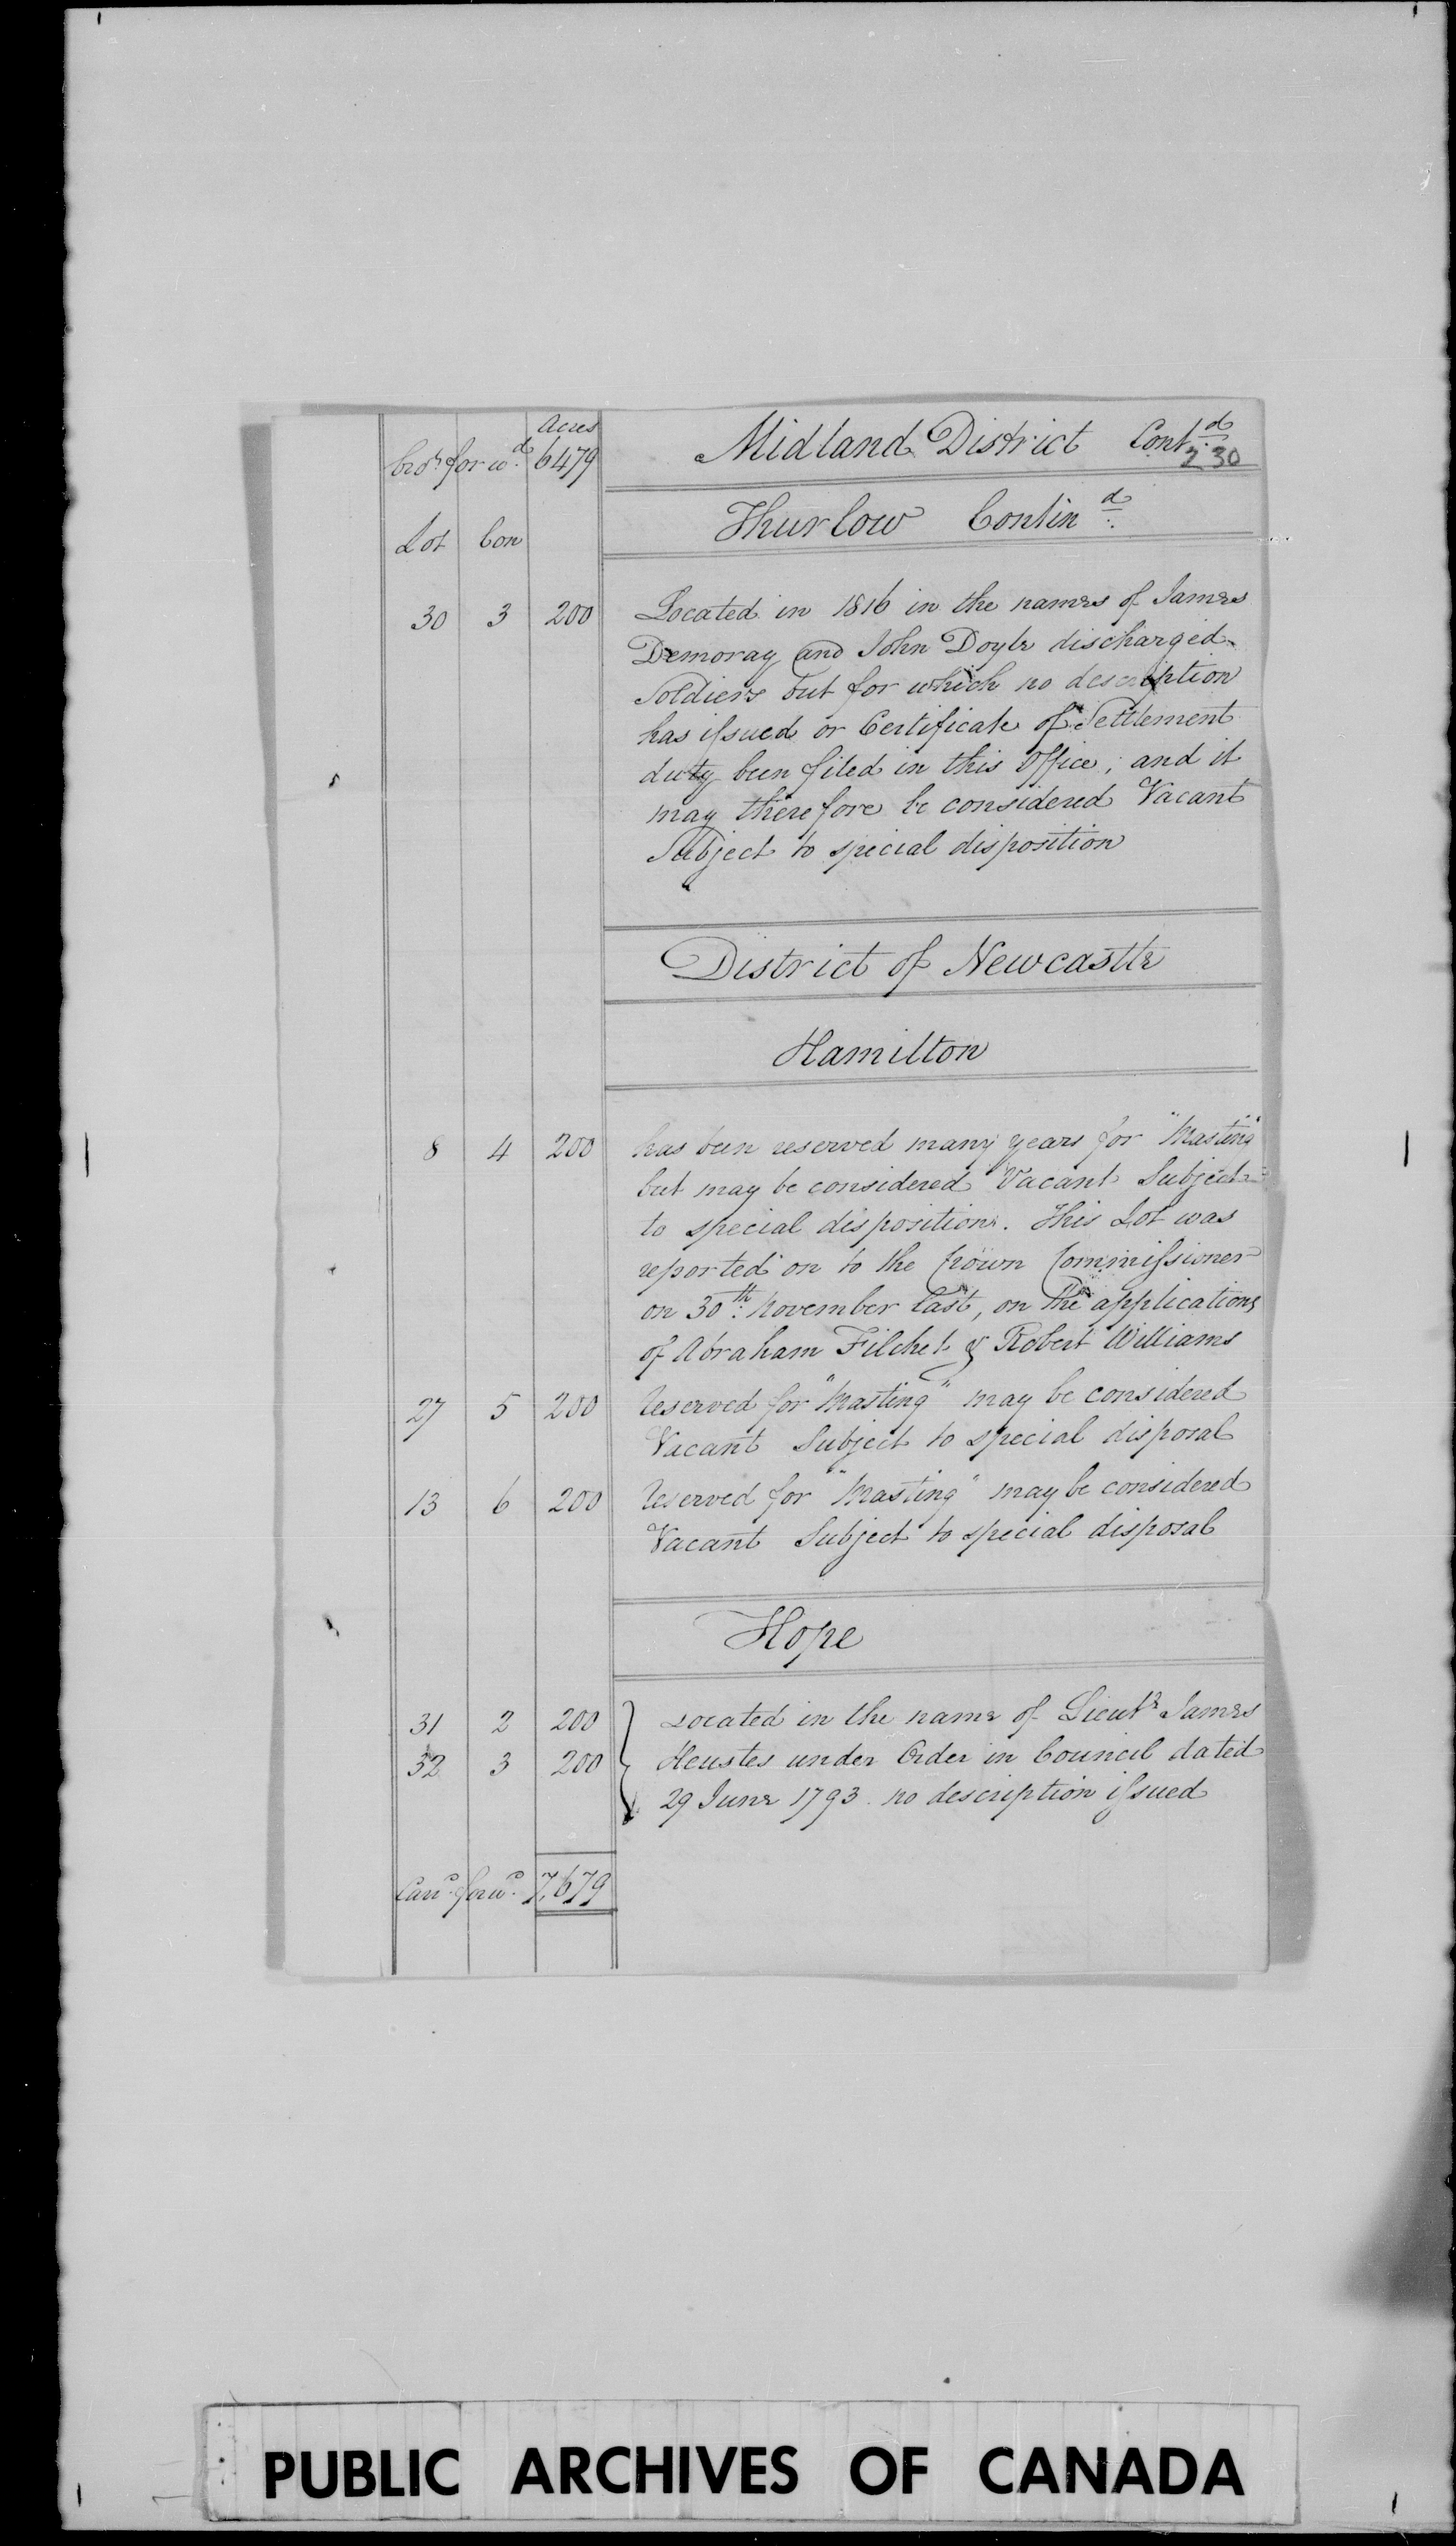 Acres
Bro.t forw.d 6479 Midland District Cont.d
230
Thurlow Contin.d
Lot Con
30 3 200 Located in 1816 in the names of James
Demoray and John Doyle discharged
Soldiers but for which no description
has issued or Certificate of Settlement
duty been filed in this Office; and it
may therefore be considered Vacant
Subject to special disposition
District of Newcastle
Hamilton
8 4 200 has been reserved many years for "Masting"
but may be considered Vacant Subject
to special disposition. This Lot was
reported on to the Crown Commissioner
on 30th November last, on the applications
of Abraham Filchet & Robert Williams
27 5 200 Reserved for "Masting" may be considered
Vacant Subject to special disposal
13 6 200 Reserved for "Masting" may be considered
Vacant Subject to special disposal
Hope
31 2 200 Located in the name of Lieut.t James
32 3 200 Heustes under Order in Council dated
29 June 1793. no description issued
Carr.d forw.d 7,679
PUBLIC ARCHIVES OF CANADA